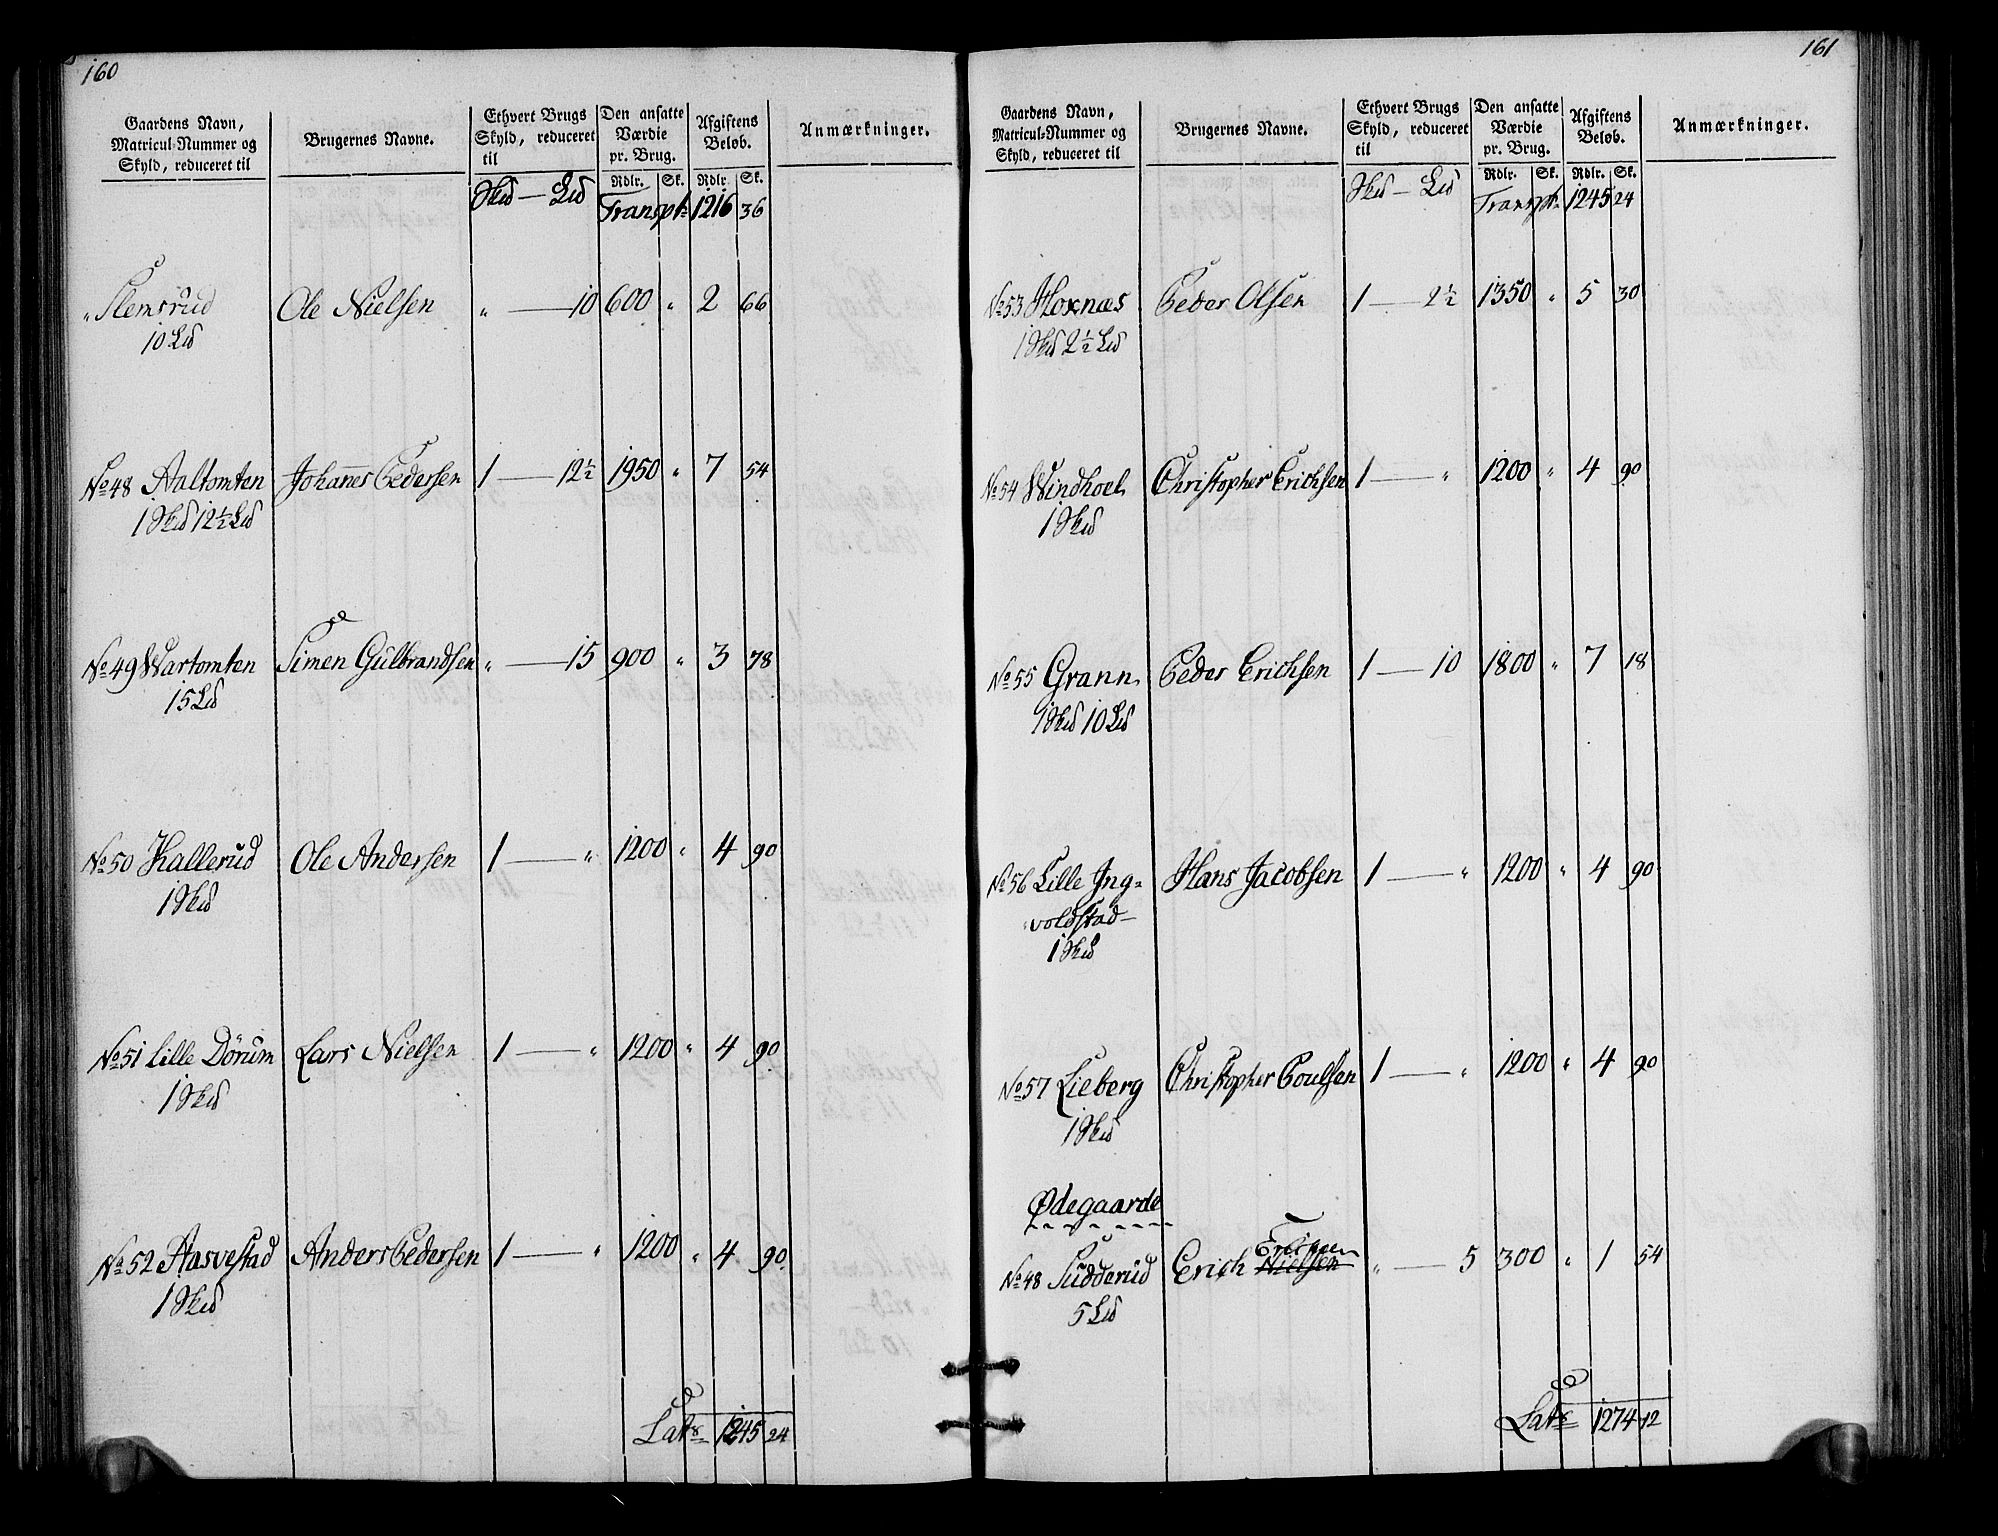 160
Gaardens Navn, Matricul-Nummer og Skyld, reduceret til | Brugernes Navne. | Ethvert Brugs Skyld, reduceret til | Den ansatte Værdie pr. Brug. | Afgiftens Beløb. | Anmærkninger.
Rdlr. Sk. Rdlr Sk.
Skd — Ld Transpt: 1216 36
„ Slemsrud Ole Nielsen „ — 10 600 „ 2 66
10 Ld
No 48 Aaltomten Johannes Pedersen 1 — 12½ 1950 „ 7 54
1 Skd 12½ Ld
No 49 Wartomten Simen Gulbrandsen „ — 15 900 „ 3 78
15 Ld
No 50 Kallerud Ole Andersen 1 — „ 1200 „ 4 90
1 Skd
No 51 Lille Dørum Lars Nielsen 1 — „ 1200 „ 4 90
1 Skd
No 52 Aasvestad Anders Pedersen 1 — „ 1200 „ 4 90
1 Skd
Lats 1245 24
161
Gaardens Navn, Matricul-Nummer og Skyld, reduceret til | Brugernes Navne. | Ethvert Brugs Skyld, reduceret til | Den ansatte Værdie pr. Brug. | Afgiftens Beløb. | Anmærkninger.
Rdlr. Sk. Rdlr. Sk.
Skd — Ld Transpt: 1245 24
No 53 Hoxnæs Peder Olsen 1 — 2½ 1350 „ 5 30
1 Skd 2½ Ld
No 54 Windhoel Christopher Erichsen 1 — „ 1200 „ 4 90
1 Skd
No 55 Grann Peder Erichsen 1 — 10 1800 „ 7 18
1 Skd 10 Ld
No 56 Lille Ing= Hans Jacobsen 1 — „ 1200 „ 4 90
voldstad
1 Skd
No 57 Lieberg Christopher Poulsen 1 — „ 1200 „ 4 90
1 Skd
Ødegaarde
No 48 Sudderud Erich Nielsen „ — 5 300 „ 1 54
5 Ld
Lats 1274 12